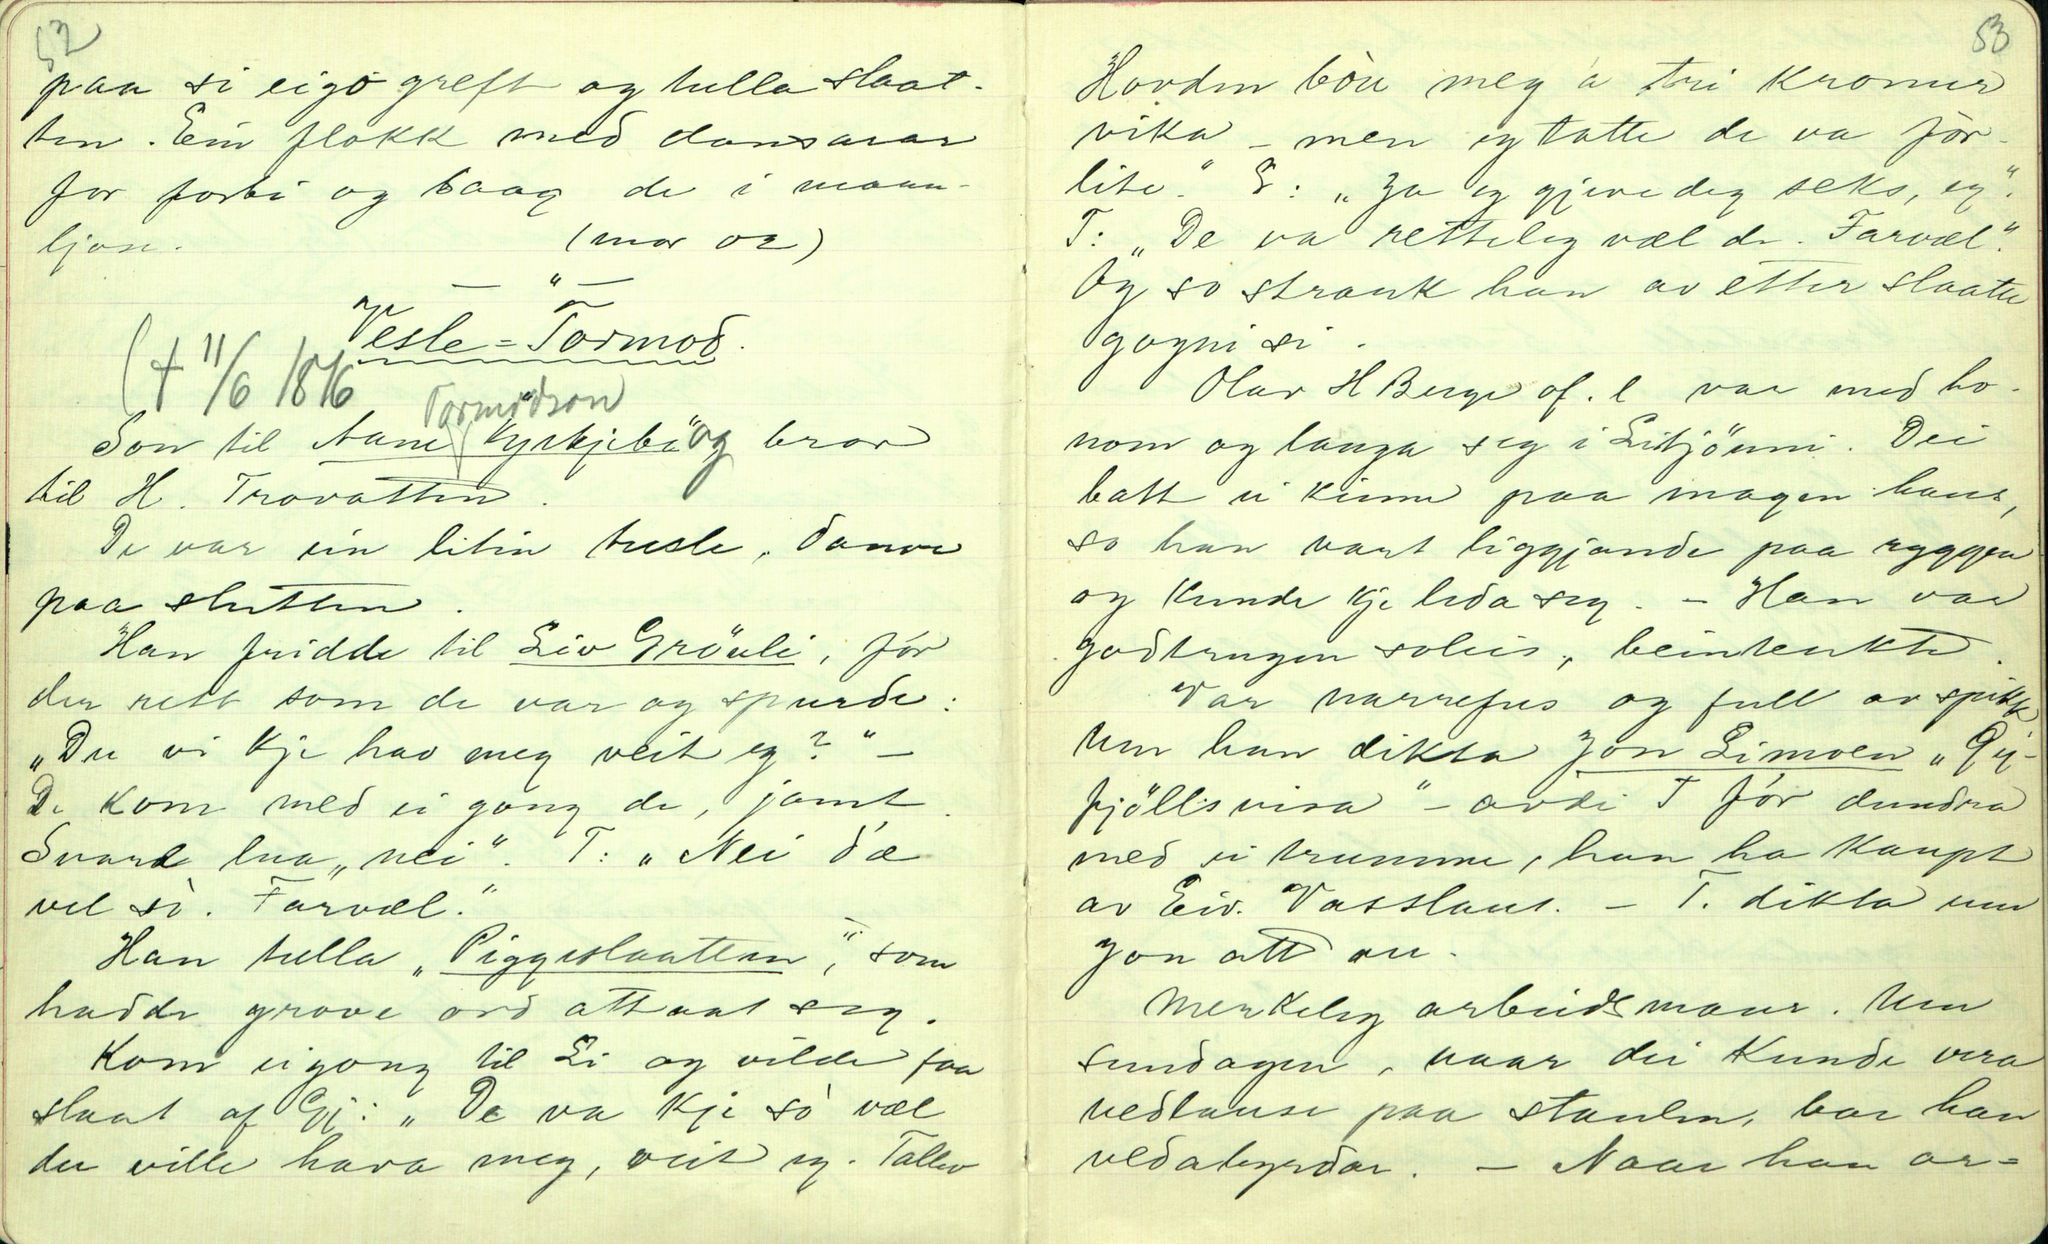 52
paa si eigo greft og tulla slaat-
ten. Ein flokk med dansarar
for forbi og baag de i maan-
ljose. (mor oa)
— " —
Vesle-Tormod.
(† 11/6 1876
Tormodson
Son til Aane "Kyrkjebø" og bror
til H. Trovatten.
De var ein liten tusle, danor
paa slutten.
Han fridde til Liv Gröuli, fór
der rett som de var og spurde:
„Du vi kje hav meg veit eg?" –
De kom med ei gong de, jamt.
Svara hua „nei". T: „Nei d'æ
vel sò. Farvæl."
Han tulla „Piggeslaatten", som
hadde grove ord attaat seg.
Kom eigong til Li og vilde faa
slaat af Gj: „De va kje sò væl
du ville hava meg, veit eg. Tallev
53
Hovden bòu meg à tri kronur
vika – men eg tatte de va fòr-
lite." G: „Ja eg gjeve deg seks, eg".
T: „De va retteleg væl de. Farvæl".
Og so strauk han av etter slaatte
gogni si.
Olav H Berge of. l var med ho-
nom og lauga seg i Litjönni. Dei
batt ei kinne paa magen hans,
so han vart liggjande paa ryggen
og kunde kje leda seg. – Han var
godtrugen soleis, beintenkte.
Var narrefus og full av spikk
Um han dikta Jon Limoen „Gy-
fjöllsvisa" – avdi T fór dundra
med ei trumme, han ha kaupt
av Eiv. Vasslaus. – T. dikta um
Jon att au.
Merkeleg arbeidsmann. Um
sundagen, naar dei kunde vera
vedlause paa staulen, bar han
vedabyrdar. – Naar han ar-